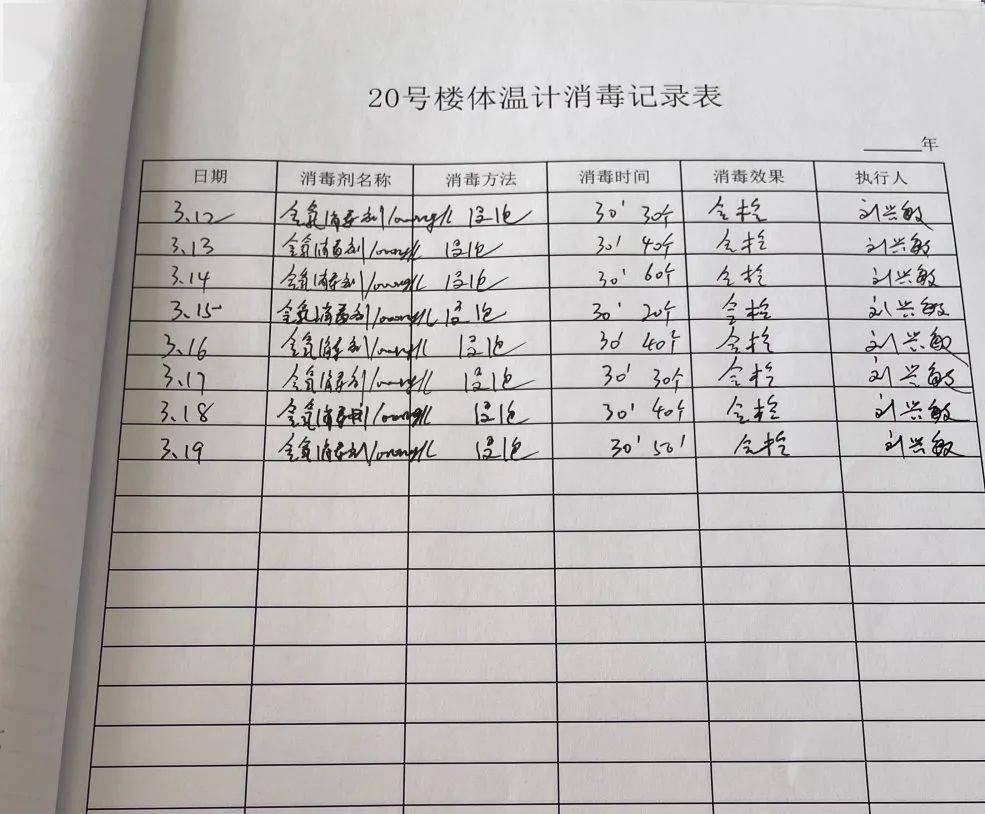 20号楼体温计消毒记录表
年
日期 消毒剂名称 消毒方法 消毒时间 消毒效果 执行人
3.12 含氯消毒剂1000mg/L 浸泡 30' 30个 合格 刘兴敏
3.13 含氯消毒剂1000mg/L 浸泡 30' 40个 合格 刘兴敏
3.14 含氯消毒剂1000mg/L 浸泡 30' 60个 合格 刘兴敏
3.15 含氯消毒剂1000mg/L 浸泡 30' 20个 合格 刘兴敏
3.16 含氯消毒剂1000mg/L 浸泡 30' 40个 合格 刘兴敏
3.17 含氯消毒剂1000mg/L 浸泡 30' 30个 合格 刘兴敏
3.18 含氯消毒剂1000mg/L 浸泡 30' 40个 合格 刘兴敏
3.19 含氯消毒剂1000mg/L 浸泡 30' 50' 合格 刘兴敏